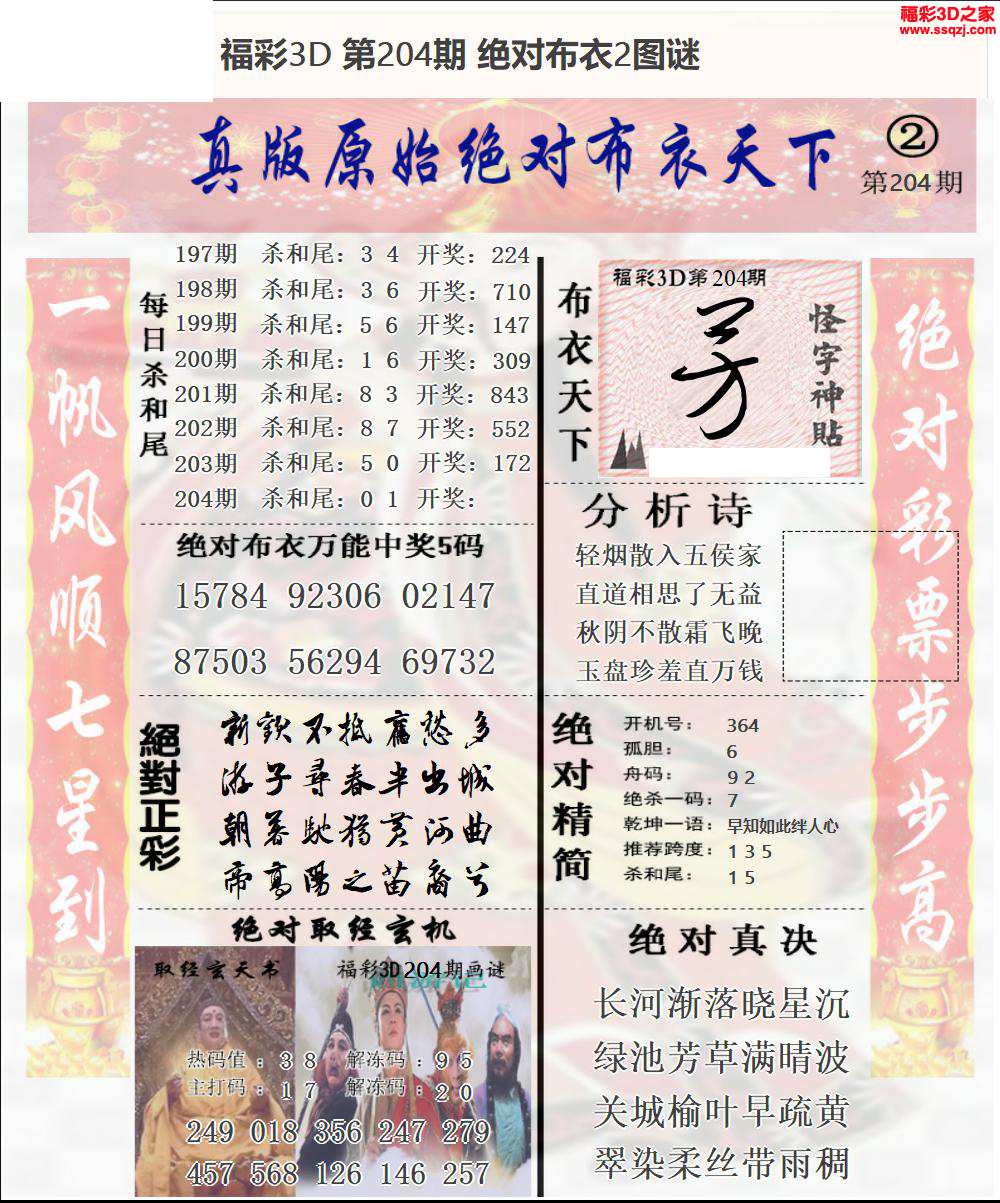 福彩3D之家
www.ssqzj.com
福彩3D 第204期 绝对布衣2图谜
真版原始绝对布衣天下
②
第204期
一帆风顺七星到
每日杀和尾
197期 杀和尾：3 4 开奖：224
198期 杀和尾：3 6 开奖：710
199期 杀和尾：5 6 开奖：147
200期 杀和尾：1 6 开奖：309
201期 杀和尾：8 3 开奖：843
202期 杀和尾：8 7 开奖：552
203期 杀和尾：5 0 开奖：172
204期 杀和尾：0 1 开奖：
绝对布衣万能中奖5码
15784 92306 02147
87503 56294 69732
絕對正彩
新欢不抵舊愁多
游子尋春半出城
朝暮馳猎黄河曲
帝高陽之苗裔兮
绝对取经玄机
取经玄天书
福彩3D204期画谜
热码值：3 8 解冻码：9 5
主打码：1 7 解冻码：2 0
249 018 356 247 279
457 568 126 146 257
布衣天下
福彩3D第204期
怪字神貼
分析诗
轻烟散入五侯家
直道相思了无益
秋阴不散霜飞晚
玉盘珍羞直万钱
绝对精简
开机号： 364
孤胆： 6
舟码： 9 2
绝杀一码： 7
乾坤一语： 早知如此绊人心
推荐跨度： 1 3 5
杀和尾： 1 5
绝对真决
长河渐落晓星沉
绿池芳草满晴波
关城榆叶早疏黄
翠染柔丝带雨稠
绝对彩票步步高